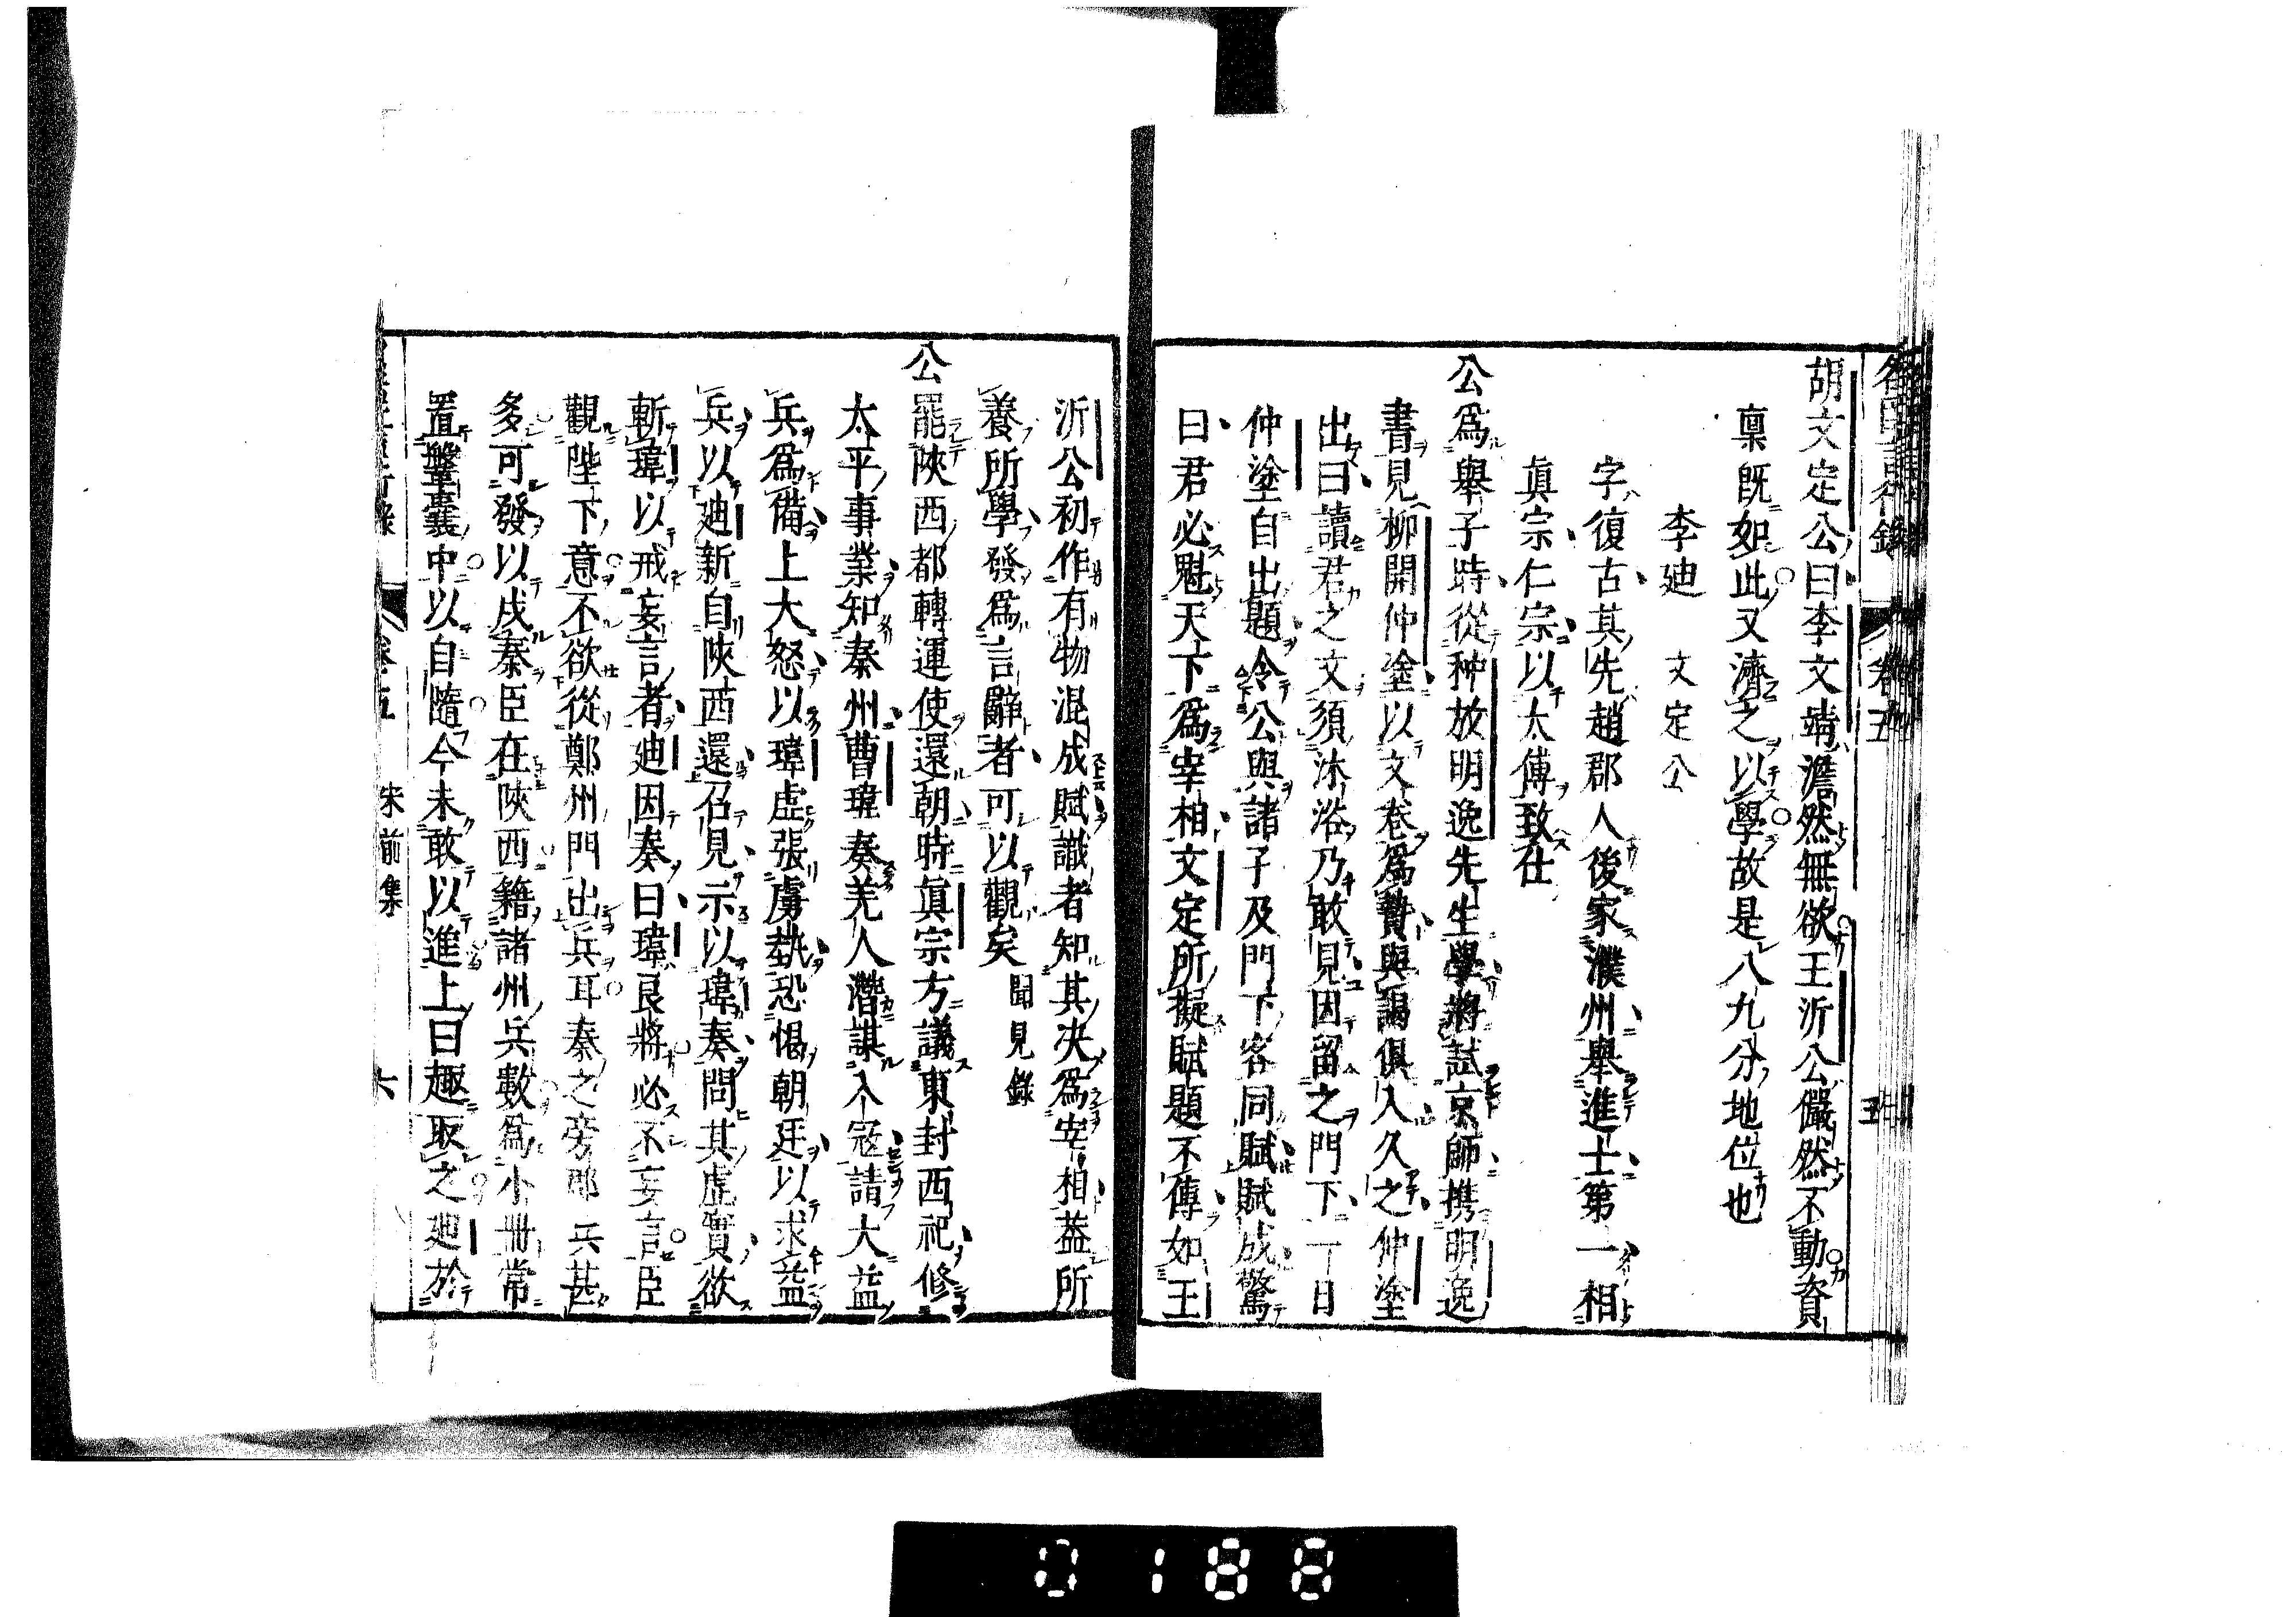 名臣言行錄 卷五 五
胡文定公曰李文靖澹然無欲王沂公儼然不動資
稟既如此又濟之以學故是八九分地位也
李廸 文定公
字復古其先趙郡人後家濮州舉進士第一相
真宗仁宗以太傅致仕
公爲舉子時從种放明逸先生學將試京師携明逸
書見柳開仲塗以文卷爲贄與謁俱入久之仲塗
出曰讀君之文須沐浴乃敢見因留之門下一日
仲塗自出題令公與諸子及門下客同賦賦成驚
曰君必魁天下爲宰相文定所擬賦題不傳如王
沂公初作有物混成賦識者知其決爲宰相葢所
養所學發爲言辭者可以觀矣 聞見錄
公罷陝西都轉運使還朝時眞宗方議東封西祀修
太平事業知秦州曹瑋奏羌人潛謀入寇請大益
兵爲備上大怒以瑋虛張虜埶恐愒朝廷以求益
兵以廸新自陝西還召見示以瑋奏問其虛實欲
斬瑋以戒妄言者廸因奏曰瑋良將必不妄言臣
觀陛下意不欲從鄭州門出兵耳秦之旁郡兵甚
多可發以戍秦臣在陝西籍諸州兵數爲小冊常
置鞶囊中以自隨今未敢以進上曰趣取之廸於
卷五 宋前集 六
0188